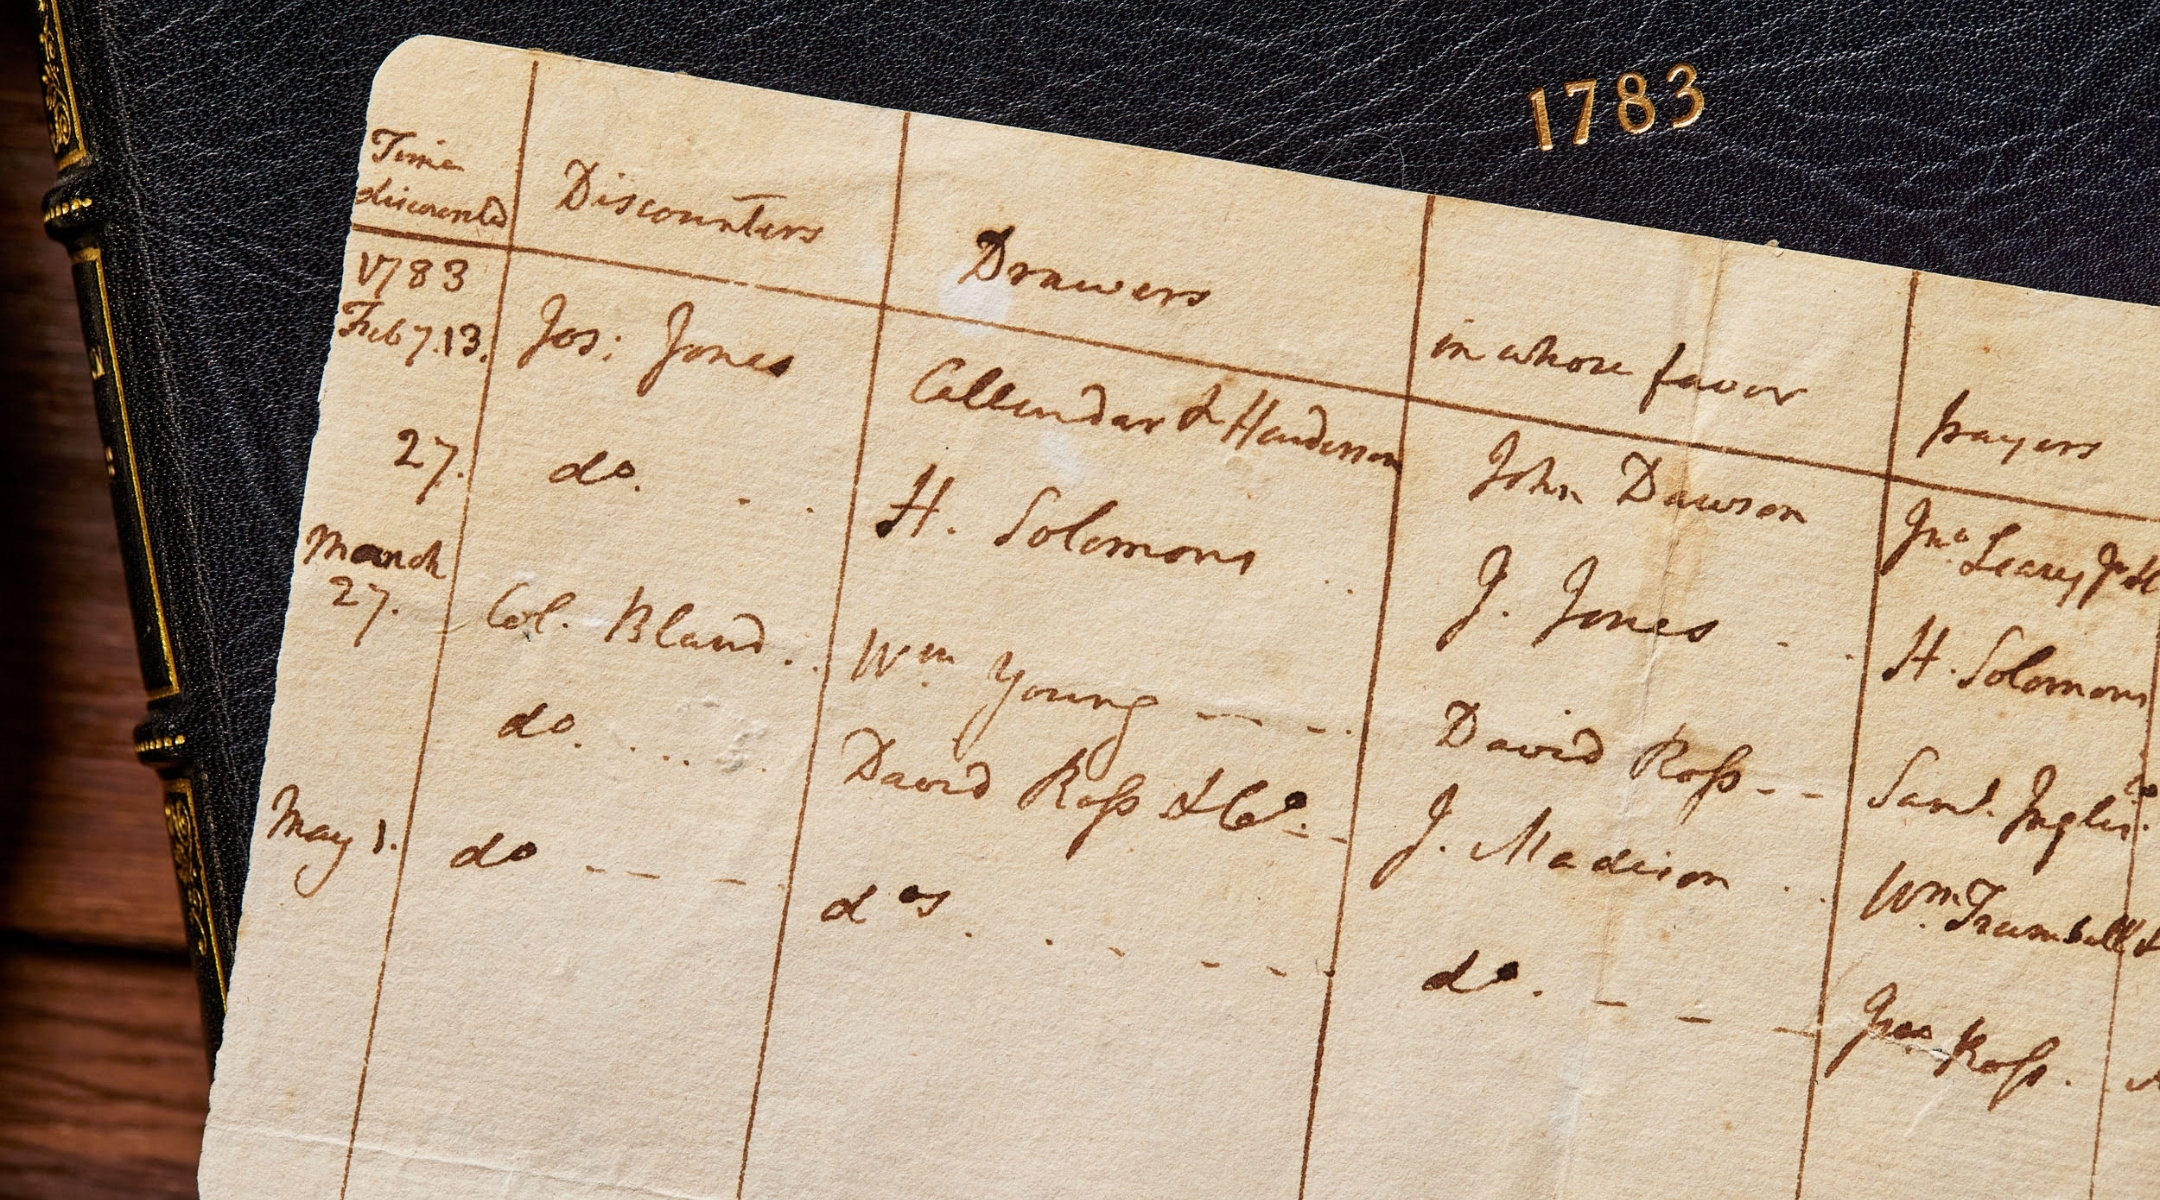 1783
Time discounted Discounters Drawers in whose favor payers
1783
Feb 7.13. Jos: Jones Callendar & Henderson John Dawson Jno. Leary Jr
27. do. H. Solomons J. Jones H. Solomons
March
27. Col. Bland Wm. Young David Ross Saml. Inglis
do. David Ross & Co. J. Madison Wm. Trumbull &
May 1. do dos. do. Ross.